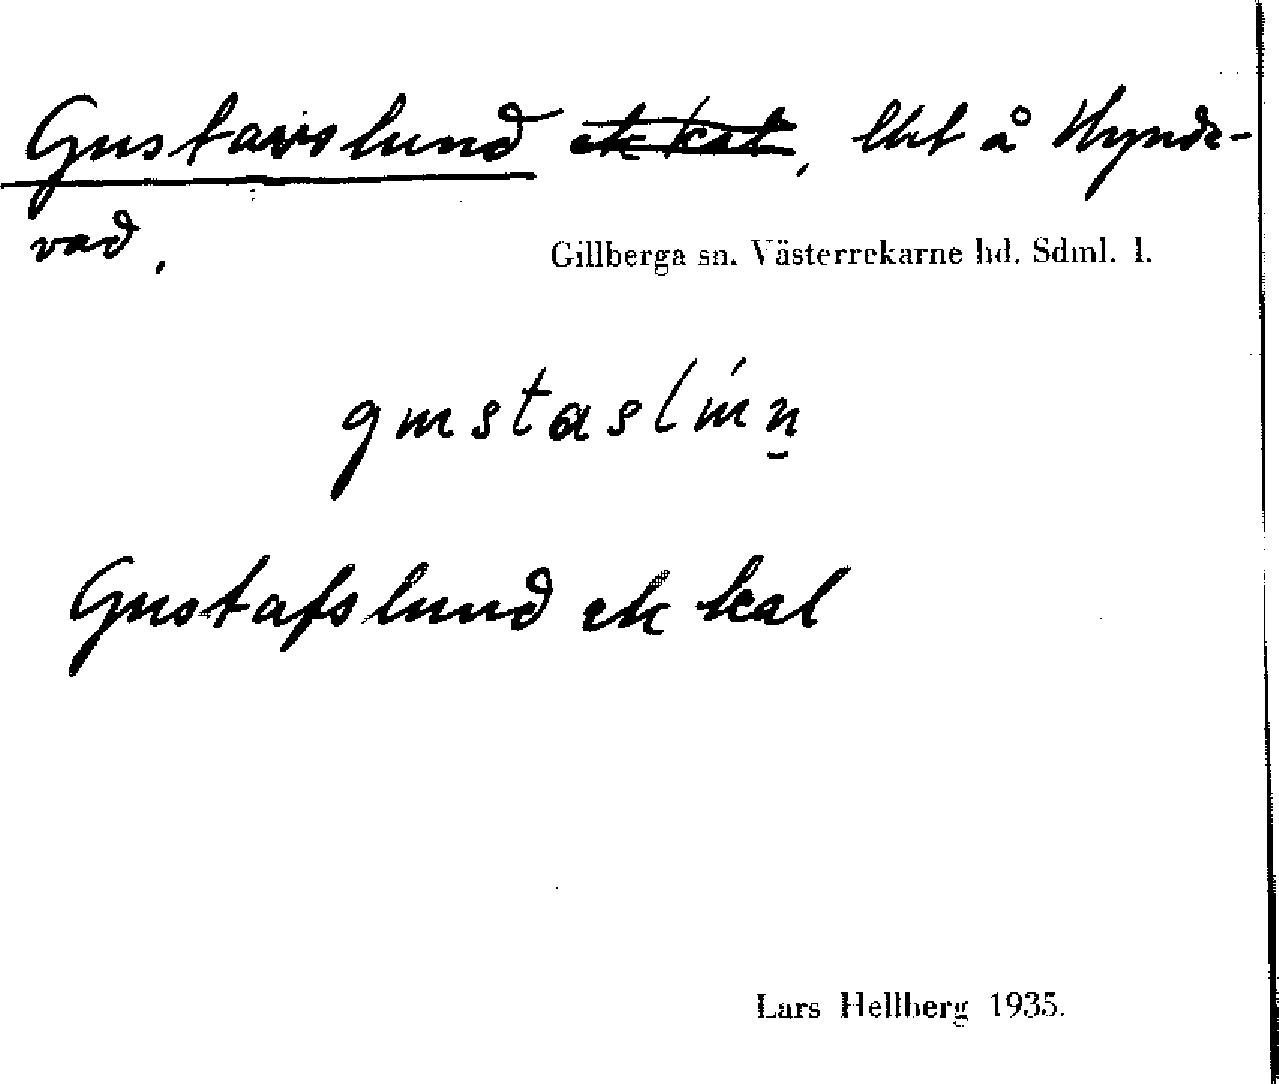 Gustavslund ek kat, lht å Hynde-
vad.
Gillberga sn. Västerrekarne hd. Sdml. l.
gustaslún
Gustafslund ek kal
Lars Hellberg 1935.